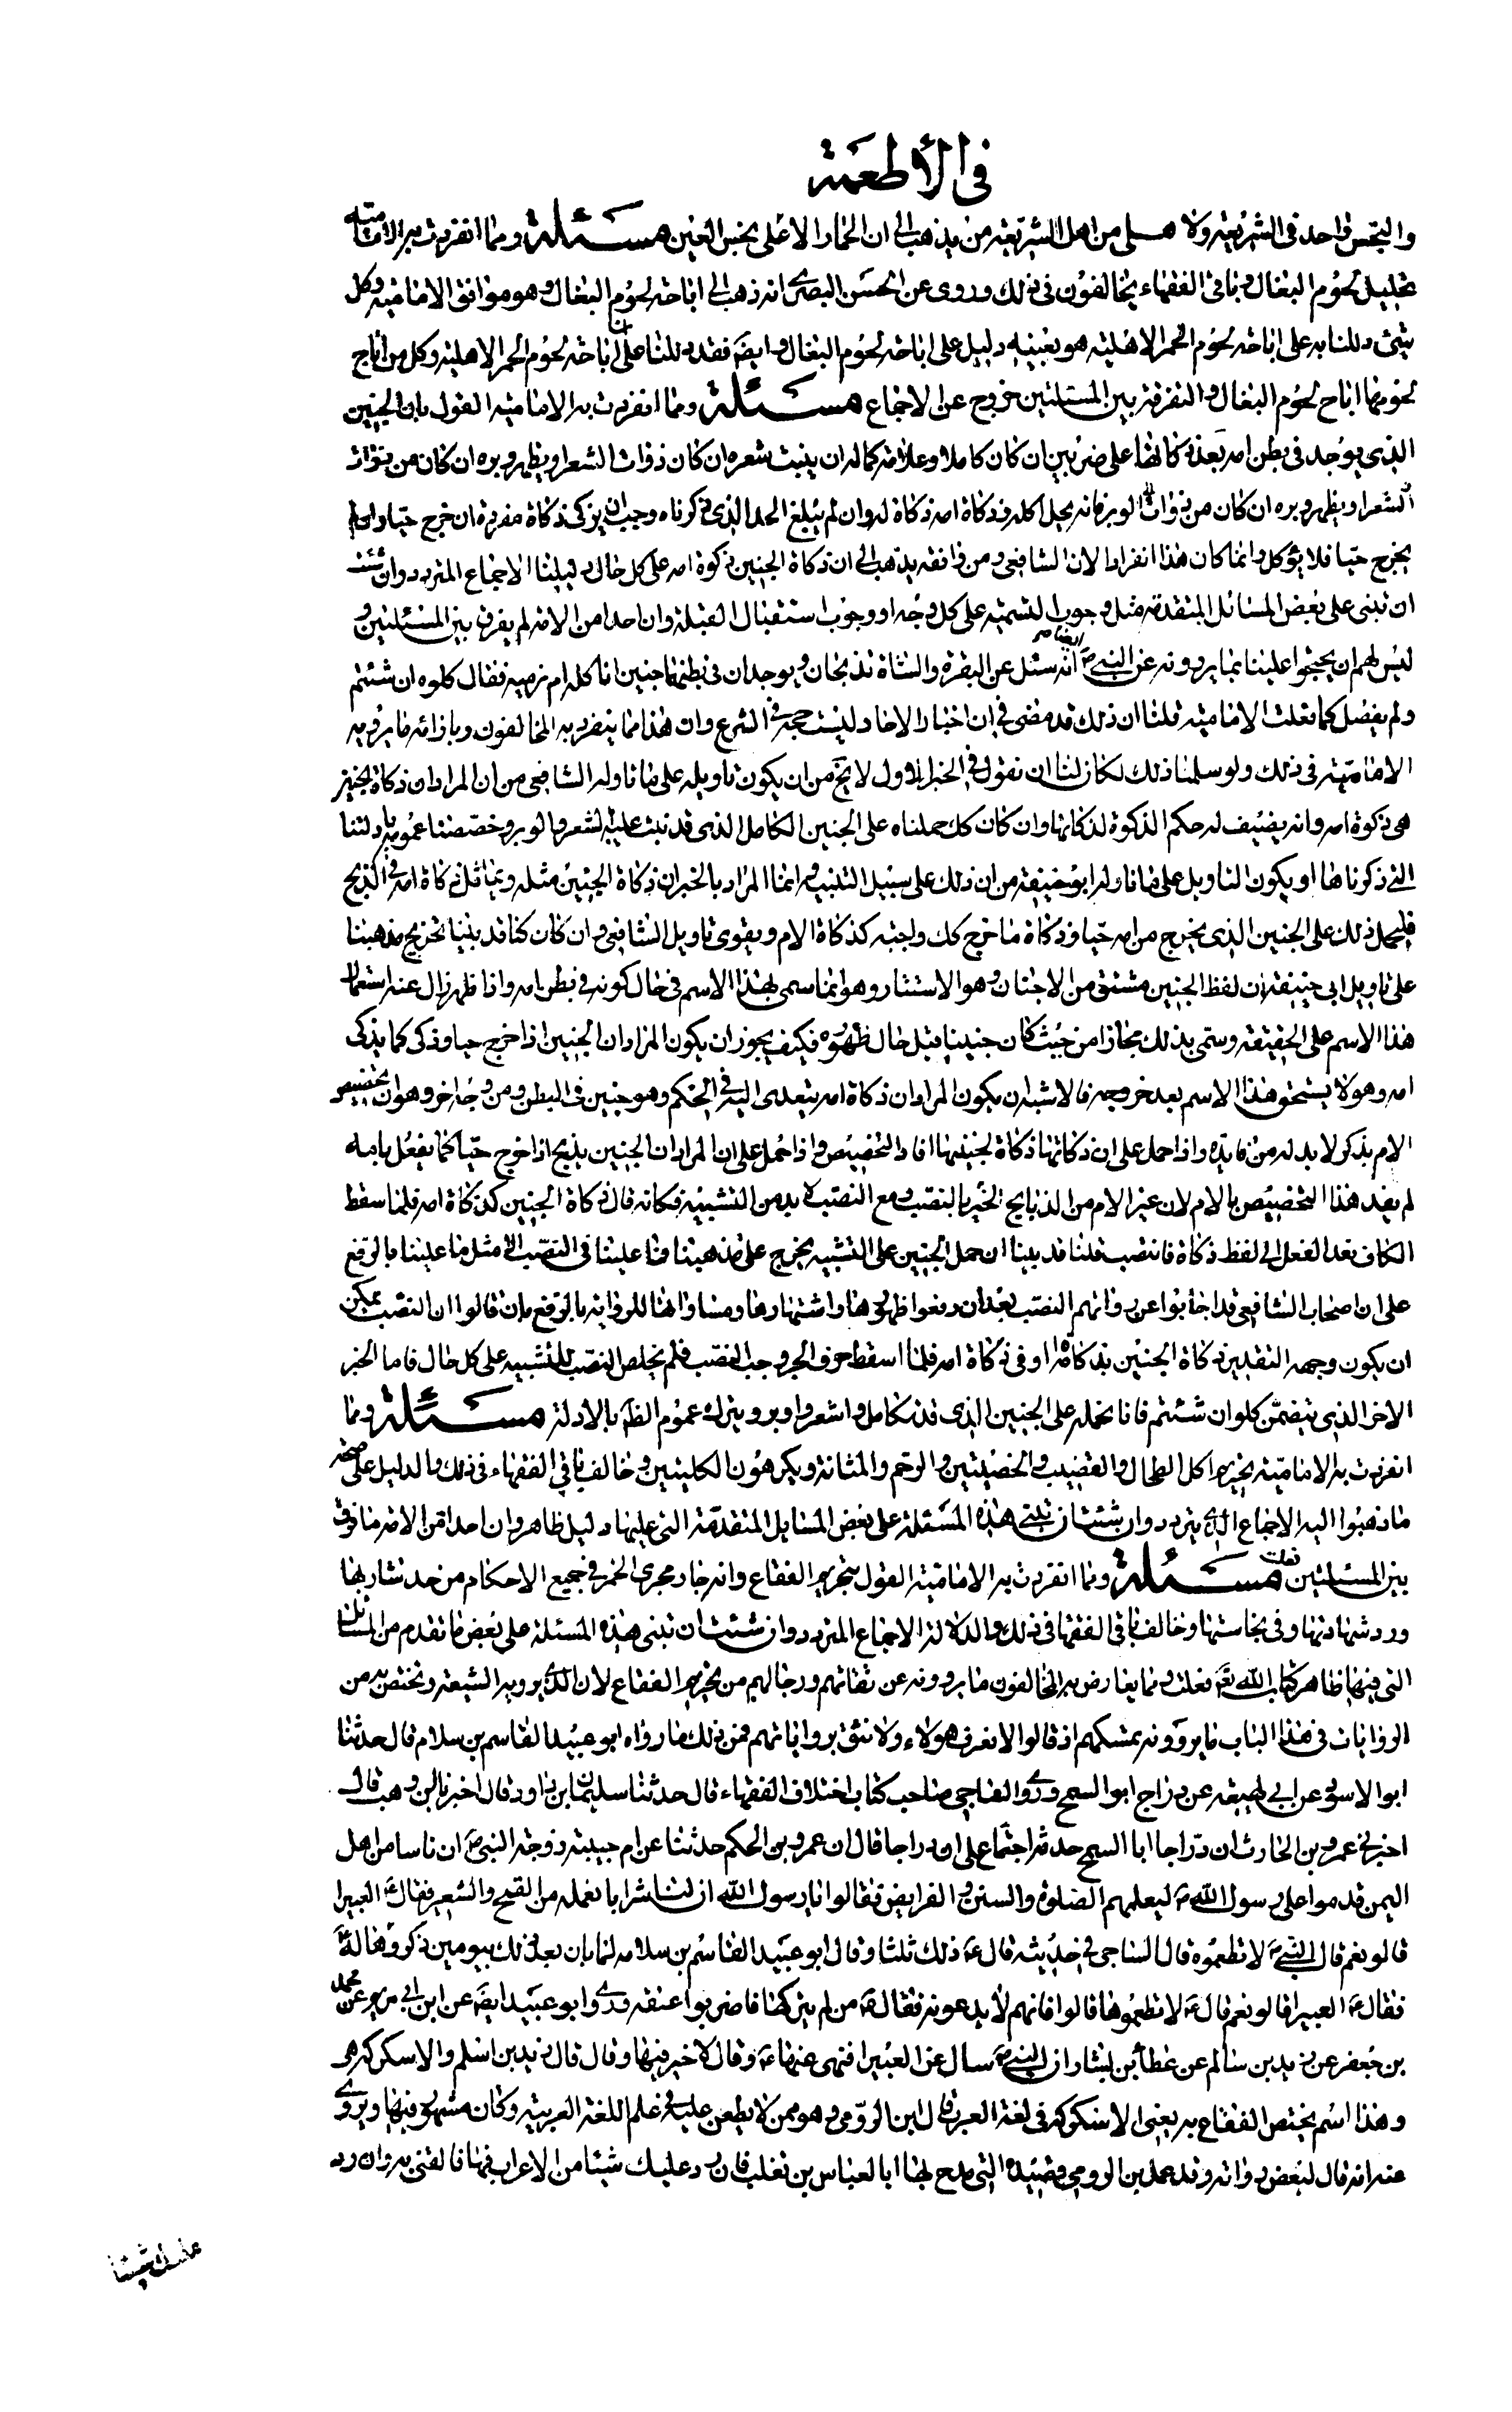 في الأطعمة
والنجس واحد في الشريعة ولا من اهل الشريعة من يذهب الى ان الحمار الاهلي نجس العين مسئلة ومما انفردت به الامامية
تحليل لحوم البغال وباقي الفقهاء يخالفون في ذلك وروى عن الحسن البصري انه ذهب الى اباحة لحوم البغال وهو موافق الامامية وكل
شيء دللنا به على اباحة لحوم الحمر الاهلية هو بعينه دليل على اباحة لحوم البغال وايضا فقد دللنا على ان اباحة لحوم الحمر الاهلية وكل من اباح
لحومها اباح لحوم البغال والتفرقة بين المسئلتين خروج عن الاجماع مسئلة ومما انفردت به الامامية القول بان الجنين
الذي يوجد في بطن امه بعد ذكاتها على ضربين ان كان كاملا وعلامة كماله ان ينبت شعره ان كان ذوات الشعر او يظهر وبره ان كان من ذوات
الشعر او يظهر وبره ان كان من ذوات الوبر فانه يحل اكله وذكاة امه ذكاة له وان لم يبلغ الحد الذي ذكرناه وجب ان يزكى ذكاة مفردة ان خرج حيا وان لم
يخرج حيا فلا يؤكل وانما كان هذا انفرادا لان الشافعي ومن وافقه يذهب الى ان ذكاة الجنين ذكوة امه على كل حال دليلنا الاجماع المتردد وان شئت
ان تبنى على بعض المسائل المتقدمة مثل وجوب التسمية على كل وجه او وجوب استقبال القبلة وان احدا من الامة لم يفرق بين المسئلتين و
ليس لهم ان يحتجوا علينا بما يروونه عن النبي ص انه سئل عن البقرة والشاة تذبحان ويوجد ان في بطنهما جنين اناكله ام نرميه فقال كلوه ان شئتم
ولم يفصل كما فعلت الامامية قلنا ان ذلك قد مضى في ان اخبار الاحاد ليست حجة في الشرع وان هذا مما ينفرد به المخالفون وبازائه ما يرويه
الامامية في ذلك ولو سلمنا ذلك لكان لنا ان نقول في الخبر الاول لا يخ من ان يكون تاويله على ما تاوله الشافعي من ان المراد ان ذكاة الجنين
هي ذكوة امه وانه يضيف له حكم الذكوة لذكاتها وان كان كك حملناه على الجنين الكامل الذي قد نبت عليه الشعر والوبر وخصصنا عمومه بادلتنا
التي ذكرناها او يكون التاويل على ما تاوله ابو حنيفة من ان ذلك على سبيل التشبيه وانما المراد بالخبر ان ذكاة الجنين مثله ويماثل ذكاة امه في الذبح
فليحمل ذلك على الجنين الذي يخرج من امه حيا وذكاة ما خرج كك واجبة كذكاة الام ويقوى تاويل الشافعي وان كان كنا قد بنينا تخريج مذهبنا
على تاويل ابي حنيفة ان لفظ الجنين مشتق من الاجتنان وهو الاستتار وهو انما سمى بهذا الاسم في حال كونه في بطن امه واذا ظهر زال عنه استعمال
هذا الاسم على الحقيقة وسمى بذلك مجازا من حيث كان جنينا قبل حال ظهوره فكيف يجوز ان يكون المراد ان الجنين اذا خرج حيا وذكى كما يذكى
امه وهو لا يستحق هذا الاسم بعد خروجه فالاشبه ان يكون المراد ان ذكاة امه يتعدى اليه في الحكم وهو جنين في البطن ومن وجه اخر وهو ان تخصيص
الام بذكر لا بد له من فايدة واذا حمل على ان ذكاتها ذكاة لجنينها افاد التخصيص واذا حمل على ان المراد ان الجنين يذبح اذا خرج حيا كما يفعل بامه
لم يفد هذا التخصيص بالام لان غير الام من الذبايح الخبر بالنصب ومع النصب لا بد من التشبيه فكانه قال ذكاة الجنين كذكاة امه فلما سقط
الكاف تعد الفعل الى لفظ ذكاة فانتصب قلنا قد بينا ان حمل الجنين على التشبيه يخرج على مذهبنا فما علينا في النصب الا مثل ما علينا بالرفع
على ان اصحاب الشافعي قد اجابوا عن رواتهم النصب بعد ان دفعوا ظهورها واشتهارها ومساواتها للرواية بالرفع بان قالوا ان النصب يمكن
ان يكون وجهه التقدير ذكاة الجنين بذكاة امه او في ذكاة امه فلما اسقط حرف الجر وجب النصب فلم يخلص النصب للتشبيه على كل حال فاما الخبر
الاخر الذي يتضمن كلوه ان شئتم فانا نحمله على الجنين الذي قد تكامل واشعر واوبر ويترك عموم الظ بالادلة مسئلة ومما
انفردت به الامامية تحريم اكل الطحال والقضيب والخصيتين والرحم والمثانة ويكرهون الكليتين وخالف باقي الفقهاء في ذلك والدليل على صحة
ما ذهبوا اليه الاجماع الذي يتردد وان شئت ان تبنى هذه المسئلة على بعض المسايل المتقدمة التي عليها دليل ظاهر وان احدا من الامة ما فرق
بين المسئلتين فعلت مسئلة ومما انفردت به الامامية القول بتحريم الفقاع وانه جار مجرى الخمر في جميع الاحكام من حد شاربها
ورد شهادتها وفي نجاستها وخالف باقي الفقها في ذلك والدلالة الاجماع المتردد وان شئت ان تبنى هذه المسئلة على بعض ما تقدم من المسائل
التي فيها ظاهر كتاب الله تع فعلت ومما يعارض به المخالفون ما يروونه عن ثقاتهم ورجالهم من تحريم الفقاع لان الذي يرويه الشيعة وتختص به من
الروايات في هذا الباب ما يروونه بمتمسكهم اذ قالوا لا نعرف هولاء ولا نثق برواياتهم فمن ذلك ما رواه ابو عبيد القاسم بن سلام قال حدثنا
ابو الاسود عن ابي لهيعة عن دراج ابو السمح وروى الفاجي صاحب كتاب اختلاف الفقهاء قال حدثنا سليمان بن داود قال اخبرنا بن وهب قال
اخبرني عمرو بن الحارث ان دراجا ابا السمح حدثه اجتماعا على ان دراجا قال ان عمرو بن الحكم حدثنا عن ام حبيبة زوجة النبي ص ان ناسا من اهل
اليمن قدموا على رسول الله ص ليعلمهم الصلوة والسنن والفرايض فقالوا يا رسول الله ان لنا شرابا نعمله من القمح والشعير فقال ع الغبيرا
قالو نعم قال النبي ص لا تطعموه قال الساجي في حديثه قال ع ذلك ثلثا وقال ابو عبيد القاسم بن سلام لما بان بعد ذلك بيومين ذكروها له ع
فقال ع الغبيرا قالو نعم قال ع لا تطعموها قالوا فانهم لا يدعونه فقال ع من لم يتركها فاضربوا عنقه وروى ابو عبيد ايضا عن ابن ابي مريم عن محمد
بن جعفر عن زيد بن سالم عن عطا بن بشار ان النبي ص سال عن الغبيرا فنهى عنها ع وقال لا خير فيها وقال قال زيد بن اسلم والاسكركة هي
وهذا اسم يختص الفقاع به يعني الاسكوكة في لغة العرب قال ابن الرومي وهو ممن لا يطعن عليه في علم اللغة العربية وكان مشهورا فيها ويروي
عنه انه قال لبعض رواته وقد عمل بن الرومي قصيدة التي مدح بها ابا العباس بن ثعلب فان رد عليك شيئا من الاعراب فيها فالقني به وان رد
عليك شيئا